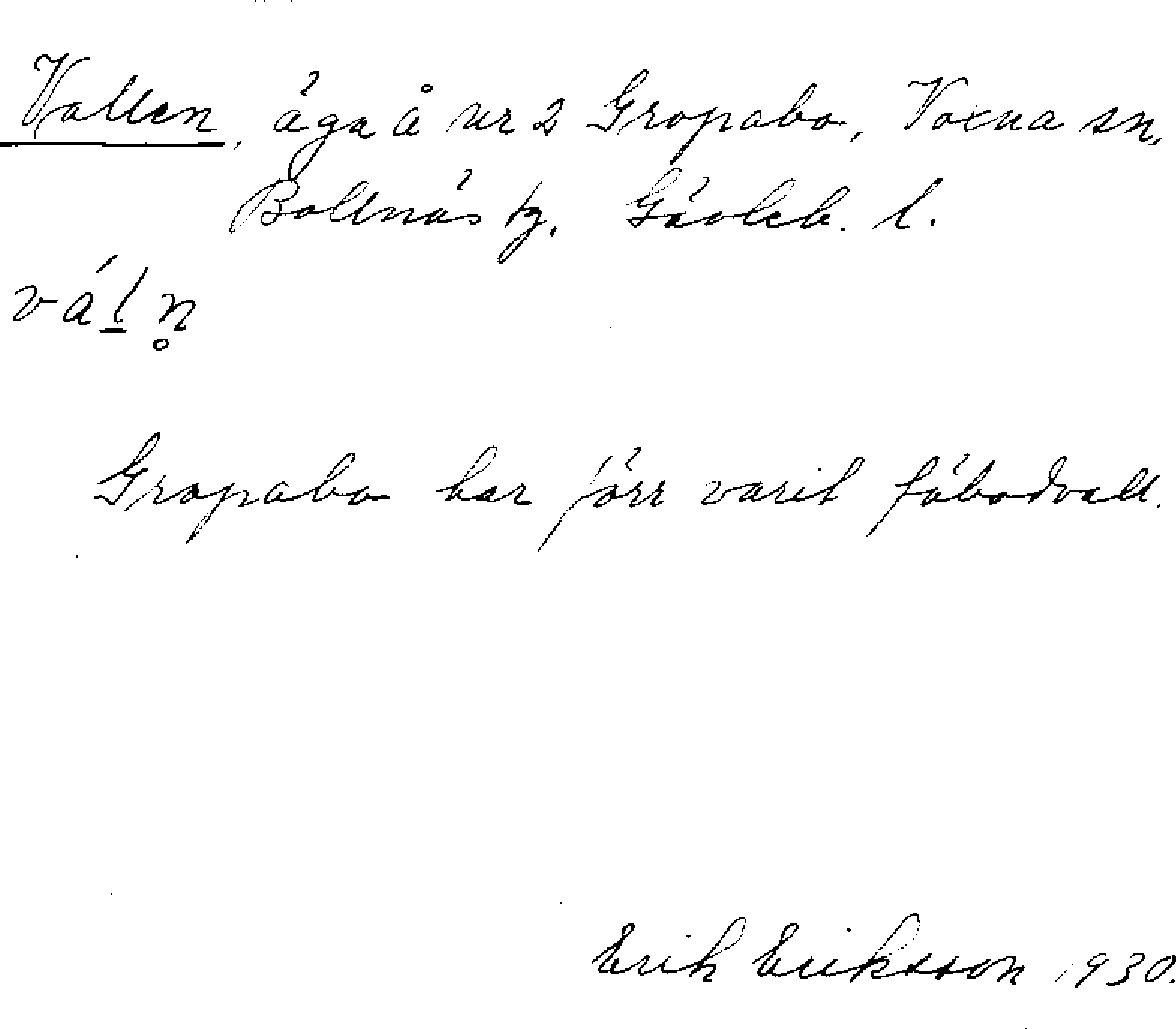 Vallen, äga å nr 2 Gropabo, Voxna sn,
Bollnäs tg, Gävleb. l.
váḻn̥
Gropabo har förr varit fäbodvall.
Erik Eriksson 1930.